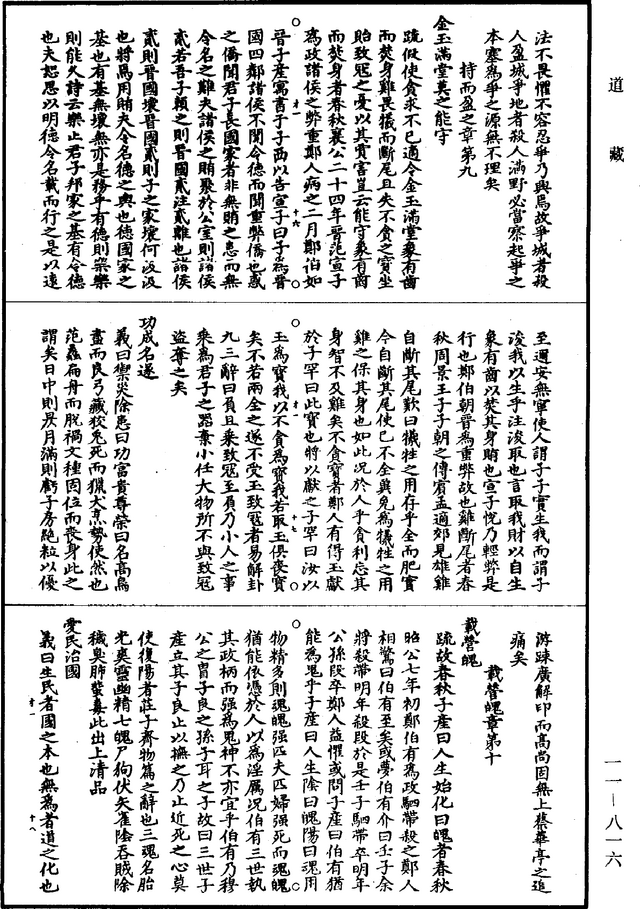 道藏
法不畏懼不容忍爭乃興焉故爭城者殺
人盈城爭地者殺人滿野必當察起爭之
本塞爲爭之源無不理矣
持而盈之章第九
金玉滿堂莫之能守
疏假使貪求不已適令金玉滿堂象有齒
而焚身雞畏犧而斷尾且失不貪之寶坐
貽致寇之憂以其賈害豈云能守象有齒
而焚身者春秋襄公二十四年晉范宣子
爲政諸侯之弊重鄭人病之二月鄭伯如
晉子產寓書于子西以告宣子曰子爲晉
國四鄰諸侯不聞令德而聞重弊僑也惑
之僑聞君子長國家者非無賄之患而無
令名之難夫諸侯之賄聚於公室則諸侯
貳若吾子賴之則晉國貳注貳離也諸侯
貳則晉國壞晉國貳則子之家壞何汲汲
也將焉用賄夫令名德之輿也德國家之
基也有基無壞無亦是務乎有德則樂樂
則能久詩云樂止君子邦家之基有令德
也夫恕思以明德令名載而行之是以遠
至邇安無寧使人謂子子實生我而謂子
浚我以生乎注浚取也言取我財以自生
象有齒以焚其身賄也宣子悅乃輕弊是
行也鄭伯朝晉爲重弊故也雞斷尾者春
秋周景王子子朝之傅賓孟適郊見雄雞
自斷其尾歎曰犧牲之用存乎全而肥實
今自斷其尾使己不全冀免爲犧牲之用
雞之保其身也如此況於人乎貪利忘其
身智不及雞矣不貪寶者鄭人有得玉獻
於子罕曰此寶也將以獻之子罕曰汝以
玉爲寶我以不貪爲寶我若取玉俱喪寶
矣不若兩全之遂不受玉致寇者易解卦
九三辭曰負且乘致寇至負乃小人之事
乘爲君子之器橐小任大物所不與致寇
盜奪之矣
功成名遂
義曰禦災除患曰功富貴尊榮曰名高鳥
盡而良弓藏狡兔死而獵犬烹勢使然也
范蠡扁舟而脫禍文種固位而喪身此之
謂矣日中則昃月滿則虧子房絶粒以優
游踈廣解印而高尚固無上蔡華亭之追
痛矣
載營魄章第十
載營魄
疏故春秋子產曰人生始化曰魄者春秋
昭公七年初鄭伯有爲政駟帶殺之鄭人
相驚曰伯有至矣或夢伯有介曰壬子余
將殺帶明年殺段於是壬子駟帶卒明年
公孫段卒鄭人益懼或問子產曰伯有猶
能爲鬼乎子產曰人生陰曰魄陽曰魂用
物精多則魂魄强匹夫匹婦强死而魂魄
猶能依憑於人以爲淫厲況伯有三世執
其政柄而强爲鬼神不亦宜乎伯有乃穆
公之冑子良之孫子耳之子故曰三世子
產立其子良止以撫之乃止近死之心莫
使復陽者莊子齊物篇之辭也三魂名胎
光爽靈幽精七魄尸狗伏矢雀陰吞賊除
穢臭肺蜚毒此出上清品
愛民治國
義曰生民者國之本也無爲者道之化也
一一—八一六